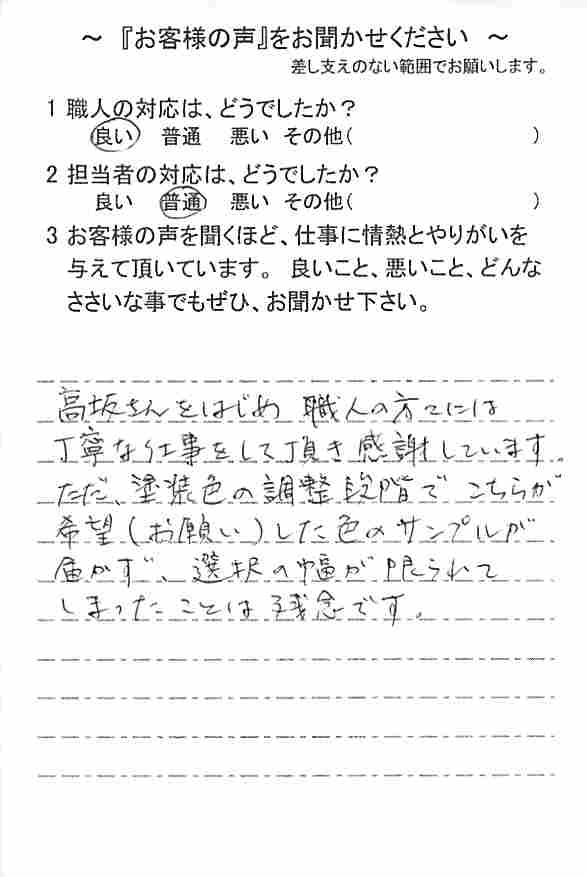 ～ 『お客様の声』をお聞かせください ～
差し支えのない範囲でお願いします。
1 職人の対応は、どうでしたか？
良い 普通 悪い その他( )
2 担当者の対応は、どうでしたか？
良い 普通 悪い その他( )
3 お客様の声を聞くほど、仕事に情熱とやりがいを
与えて頂いています。 良いこと、悪いこと、どんな
ささいな事でもぜひ、お聞かせ下さい。
高坂さんをはじめ 職人の方々には
丁寧な仕事をして頂き感謝しています。
ただ、塗装色の調整段階で こちらが
希望(お願い)した色のサンプルが
届かず、選択の幅が限られて
しまったことは残念です。